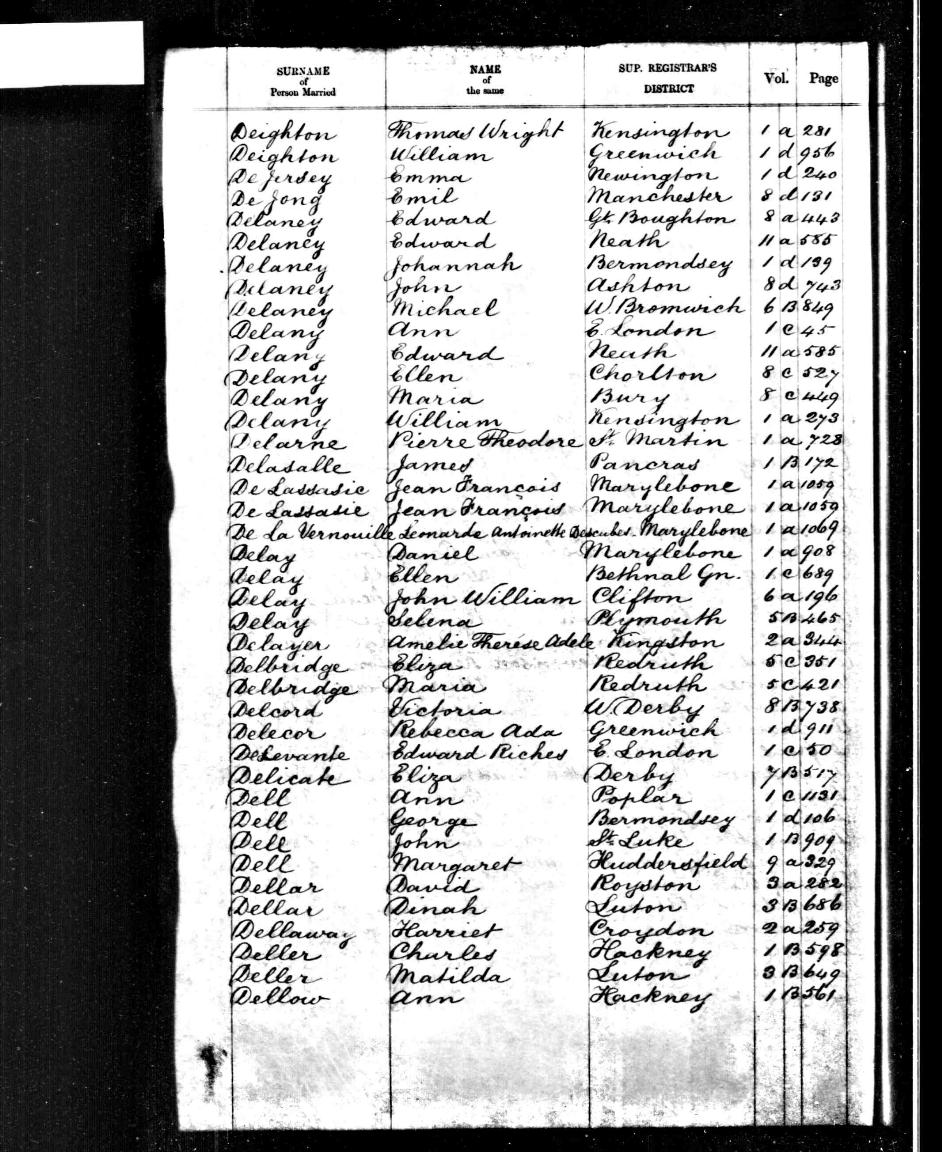 SURNAME of Person Married NAME of the same SUP. REGISTRAR'S DISTRICT Vol. Page
Deighton Thomas Wright Kensington 1 a 281
Deighton William Greenwich 1 d 956
De Jersey Emma Newington 1 d 240
De Jong Emil Manchester 8 d 131
Delaney Edward Gt. Boughton 8 a 443
Delaney Edward Neath 11 a 585
Delaney Johannah Bermondsey 1 d 139
Delaney John Ashton 8 d 743
Delaney Michael W. Bromwich 6 B 849
Delany Ann E. London 1 c 45
Delany Edward Neath 11 a 585
Delany Ellen Chorlton 8 c 527
Delany Maria Bury 8 c 449
Delany William Kensington 1 a 273
Delarne Pierre Theodore St. Martin 1 a 728
Delasalle James Pancras 1 B 172
De Lassasie Jean François Marylebone 1 a 1059
De Lassasie Jean François Marylebone 1 a 1059
De La Vernouille Leonarde Antoinette Descubes Marylebone 1 a 1069
Delay Daniel Marylebone 1 a 908
Delay Ellen Bethnal Gn. 1 c 689
Delay John William Clifton 6 a 196
Delay Selena Plymouth 5 B 465
Delayer Amelie Therése Adele Kingston 2 a 344
Delbridge Eliza Redruth 5 c 351
Delbridge Maria Redruth 5 c 421
Delcord Victoria W. Derby 8 B 738
Delecor Rebecca Ada Greenwich 1 d 911
DeLevante Edward Riches E. London 1 c 50
Delicate Eliza Derby 7 B 517
Dell Ann Poplar 1 c 1131
Dell George Bermondsey 1 d 106
Dell John St. Luke 1 B 909
Dell Margaret Huddersfield 9 a 329
Dellar David Royston 3 a 282
Dellar Dinah Luton 3 B 686
Dellaway Harriet Croydon 2 a 259
Deller Charles Hackney 1 B 598
Deller Matilda Luton 3 B 649
Dellow Ann Hackney 1 B 561